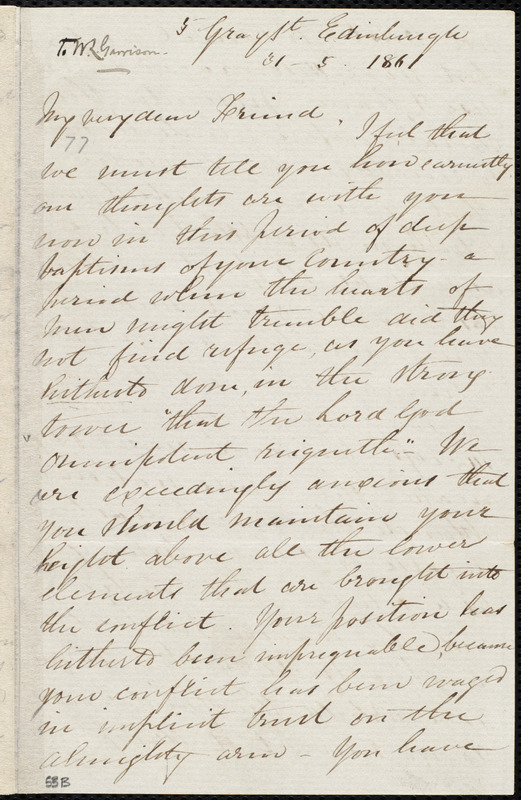 5 Gray St. Edinburgh
T. W. L. Garrison.
31 - 5 - 1861
My very dear Friend,
77
I feel that
we must tell you how earnestly
our thoughts are with you
now in this period of deep
baptisms of your Country - a
period when the hearts of
men might tremble did they
not find refuge, as you have
hitherto done, in the strong
tower "that the Lord God
omnipotent reigneth" - We
are exceedingly anxious that
you should maintain your
height above all the lower
elements that are brought into
the conflict. Your position has
hitherto been impregnable, because
your conflict has been waged
in implicit trust on the
Almighty arm - You have
53B